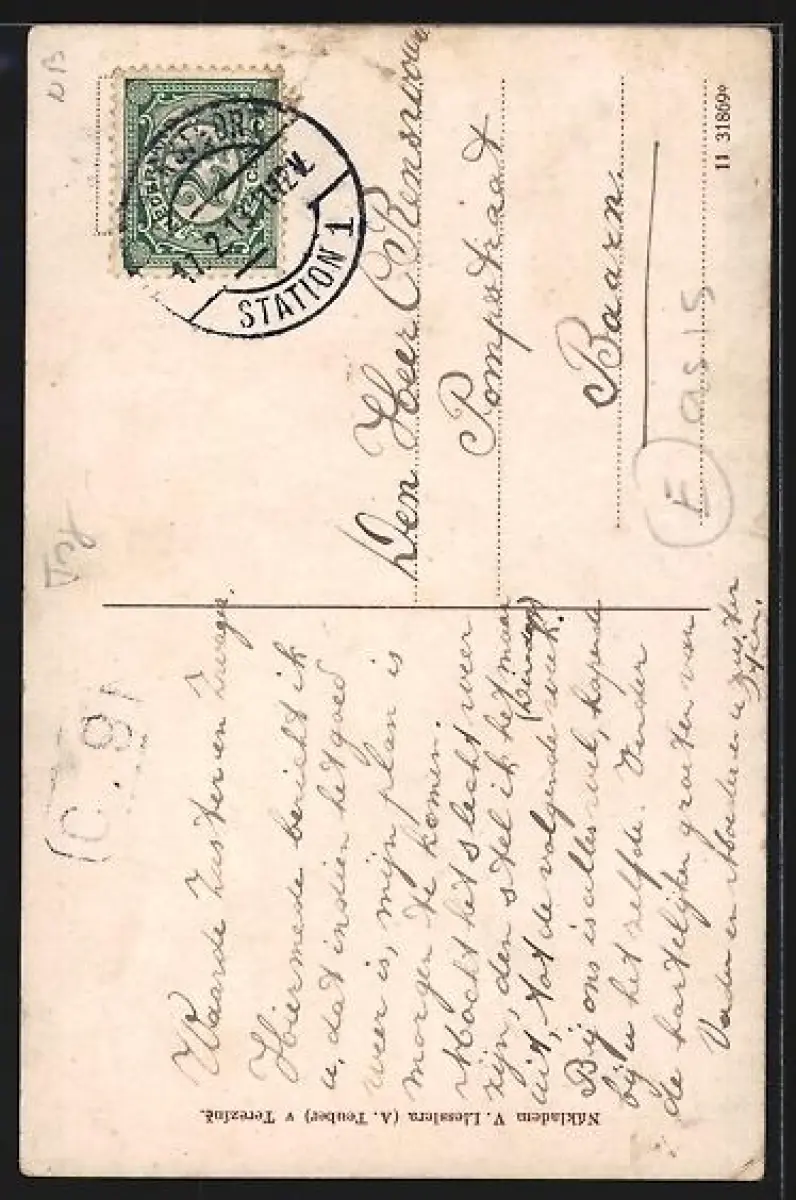 Waarde Zuster en Zwager.
Hiermede bericht ik
u, dat indien het goed
weer is, mijn plan is
morgen te komen.
Mocht het slecht weer
zijn, dan stel ik het maar
uit, tot de volgende week.
(Dinsdag)
Bij ons is alles wel, hopende
bij u het zelfde. Verder
de hartelijke groeten van
Vader en Moeder en u zuster
Den Heer C Renswou
Pompstraat
Baarn.
STATION 1
17.2.13
11 31869
Nákladem V. Liesslera (A. Teuber) v Terezíně.
NB
(C. 91
E
asis